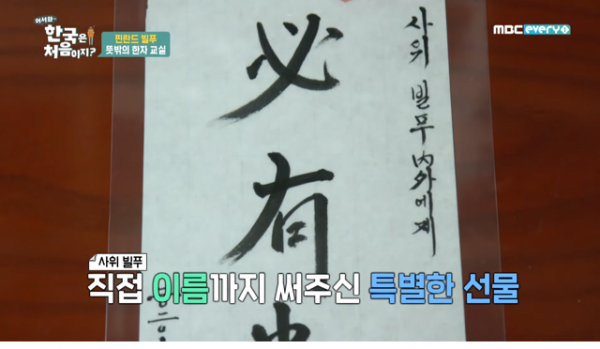 어서와~
한국은
처음이지?
핀란드 빌푸
뜻밖의 한자 교실
MBC every1
必有
사위 빌푸 內外에게
사위 빌푸
직접 이름까지 써주신 특별한 선물